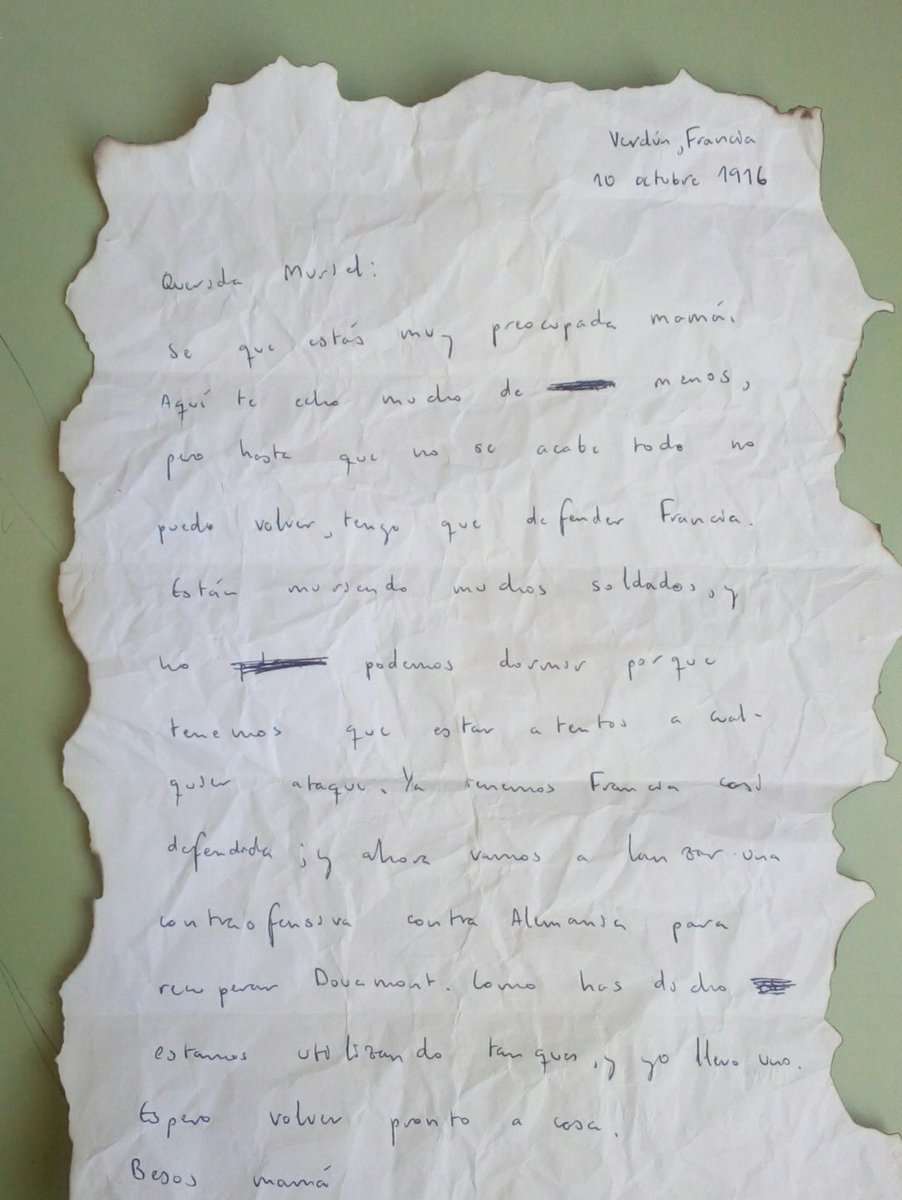 Verdún, Francia
10 octubre 1916
Querida Muriel:
se que estás muy preocupada mamá.
Aquí te echo mucho de menos,
pero hasta que no se acabe todo no
puedo volver, tengo que defender Francia.
Están muriendo muchos soldados, y
no podemos dormir porque
tenemos que estar atentos a cual-
quier ataque. Ya tenemos Francia casi
defendida ; y ahora vamos a lanzar una
contraofensiva contra Alemania para
recuperar Douamont. Como has dicho
estamos utilizando tanques, y yo llevo uno.
Espero volver pronto a casa.
Besos mamá